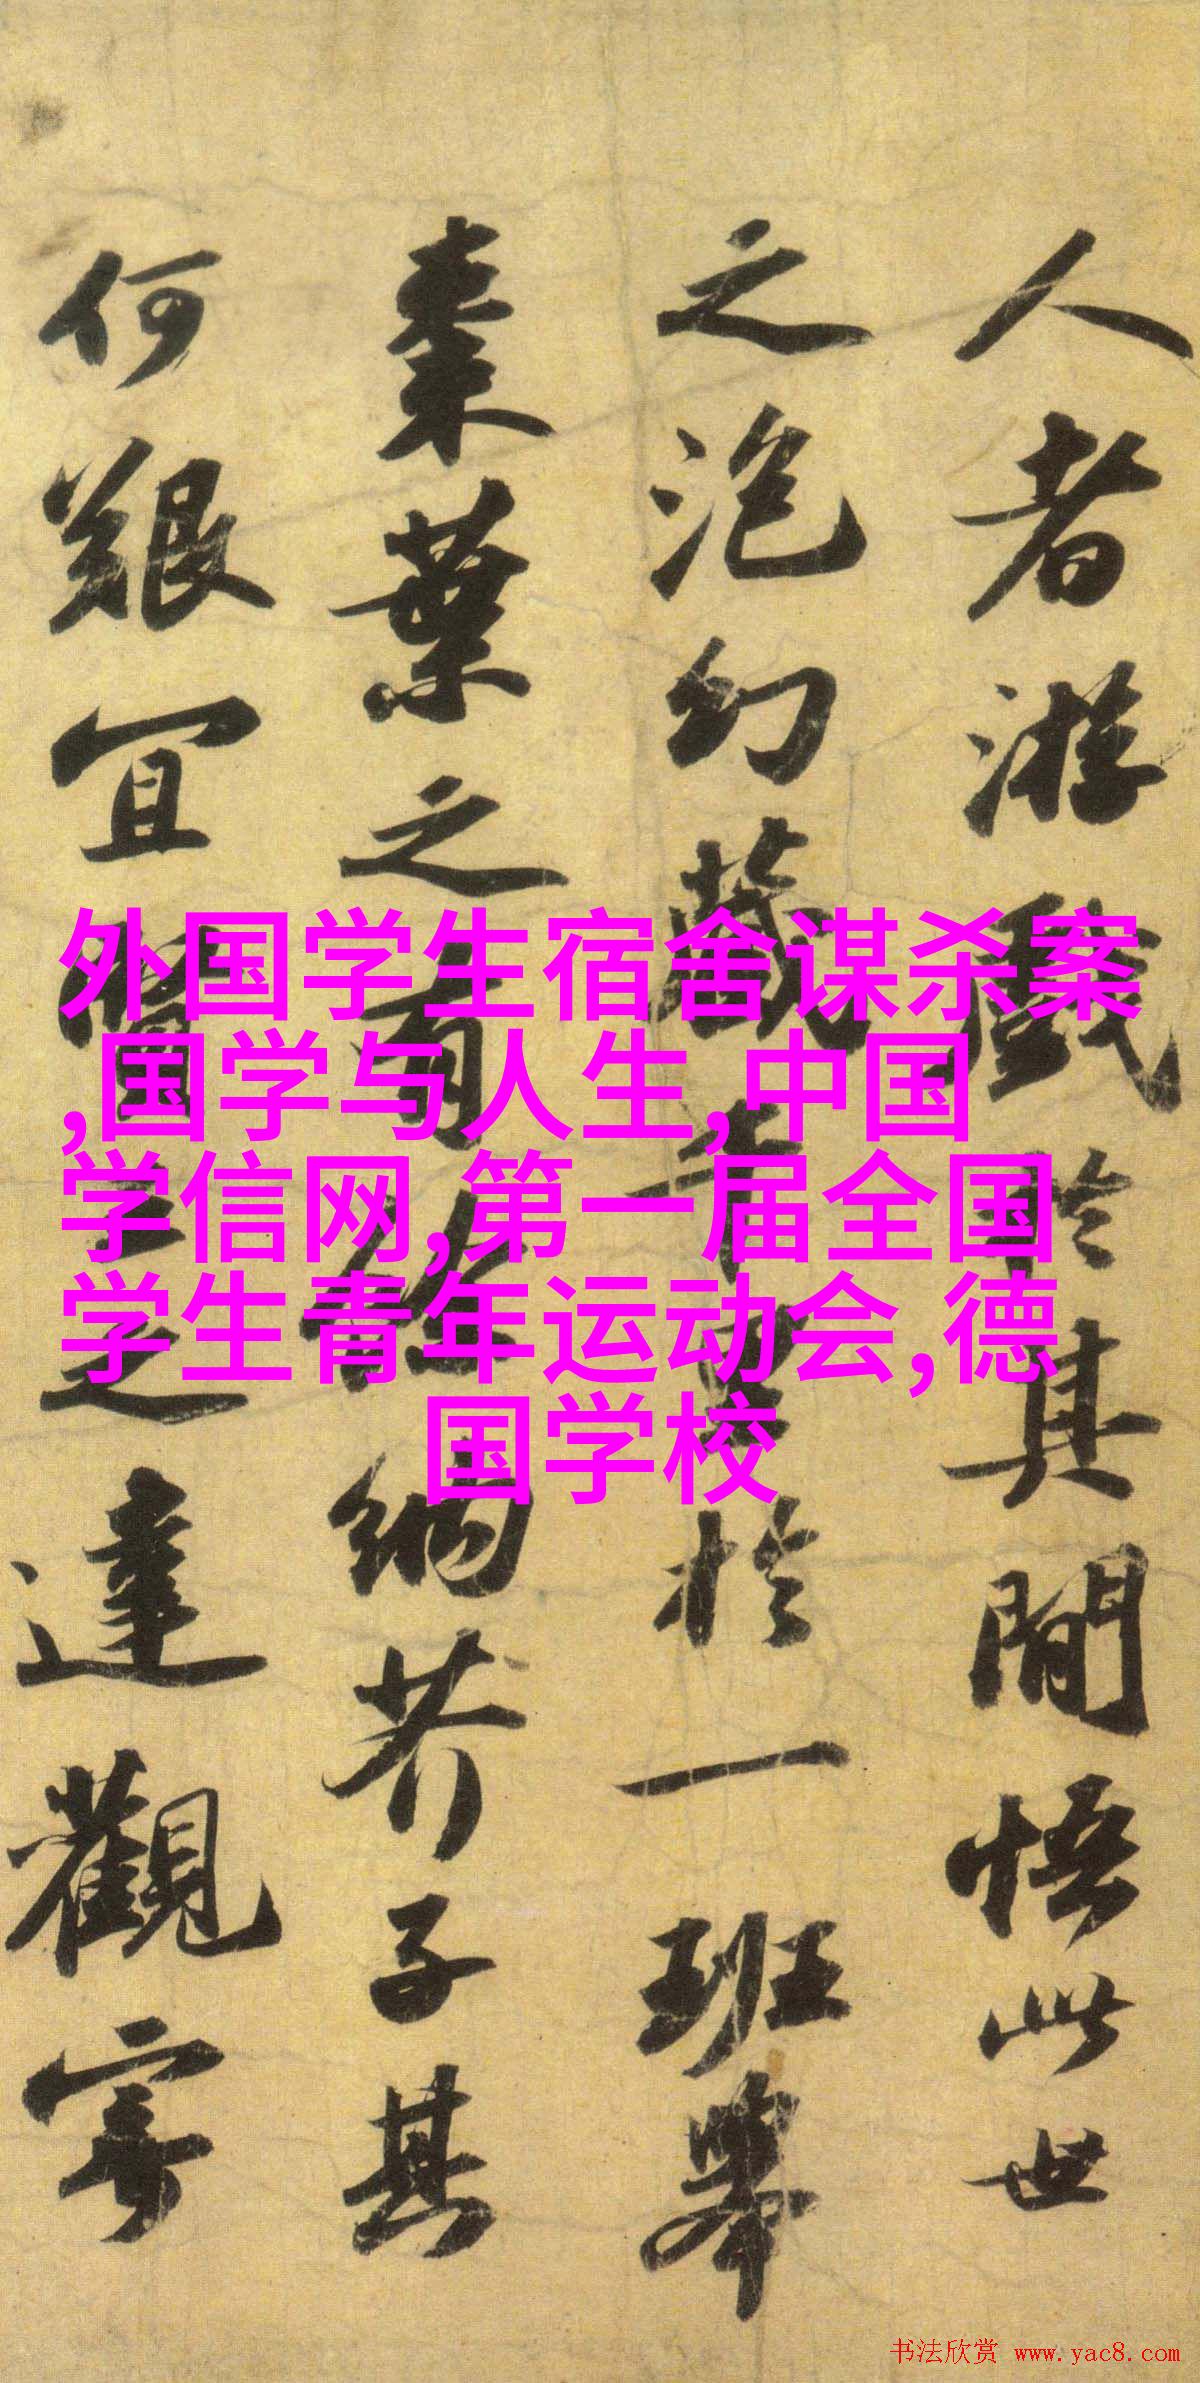 人者游戲於其間悟此世
之泡幻藏千里於一班舉
棗葉之有餘納芥子其
何艱宜賢王之達觀寄
外国学生宿舍谋杀案
,国学与人生,中国
学信网,第一届全国
学生青年运动会,德
国学校
书法欣赏 www.yac8.com